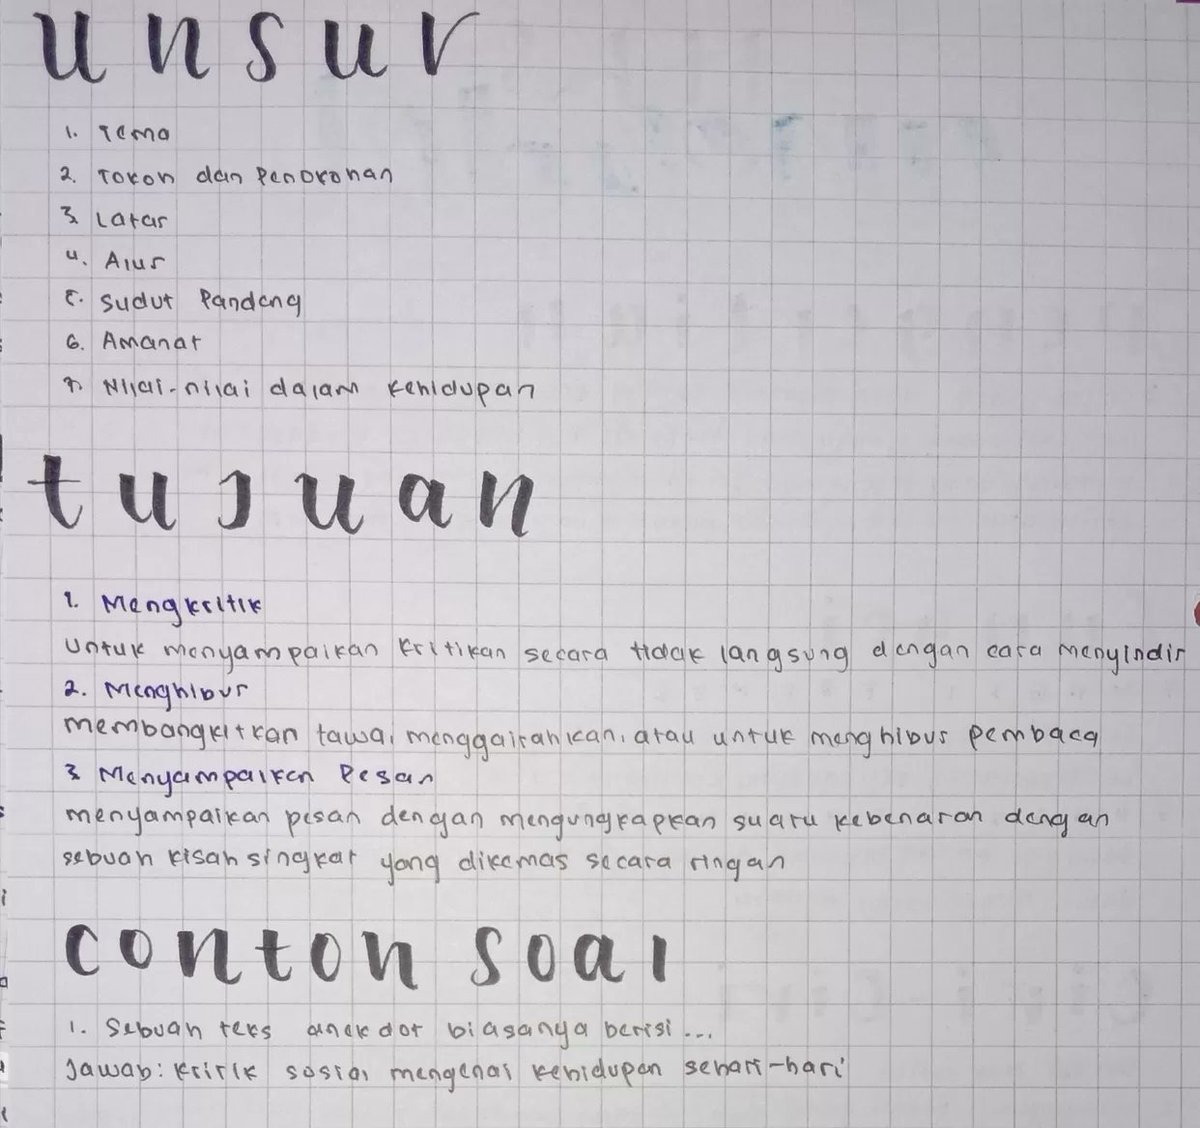 unsur
1. Tema
2. Tokoh dan Penokohan
3. Latar
4. Alur
5. Sudut Pandang
6. Amanat
7. Nilai-nilai dalam kehidupan
tujuan
1. Mengkritik
untuk menyampaikan kritikan secara tidak langsung dengan cara menyindir
2. Menghibur
membangkitkan tawa, menggairahkan, atau untuk menghibur pembaca
3. Menyampaikan Pesan
menyampaikan pesan dengan mengungkapkan suatu kebenaran dengan
sebuah kisah singkat yang dikemas secara ringan
contoh soal
1. Sebuah teks anekdot biasanya berisi...
Jawab: kritik sosial mengenai kehidupan sehari-hari